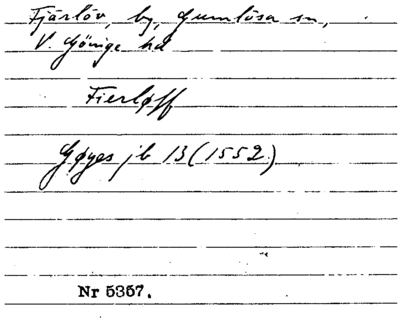 Fjärlöv, by, Gumlösa sn,
V. Göinge hd
Fierløff
Gøyes jb 13 (1552)
Nr 5357.